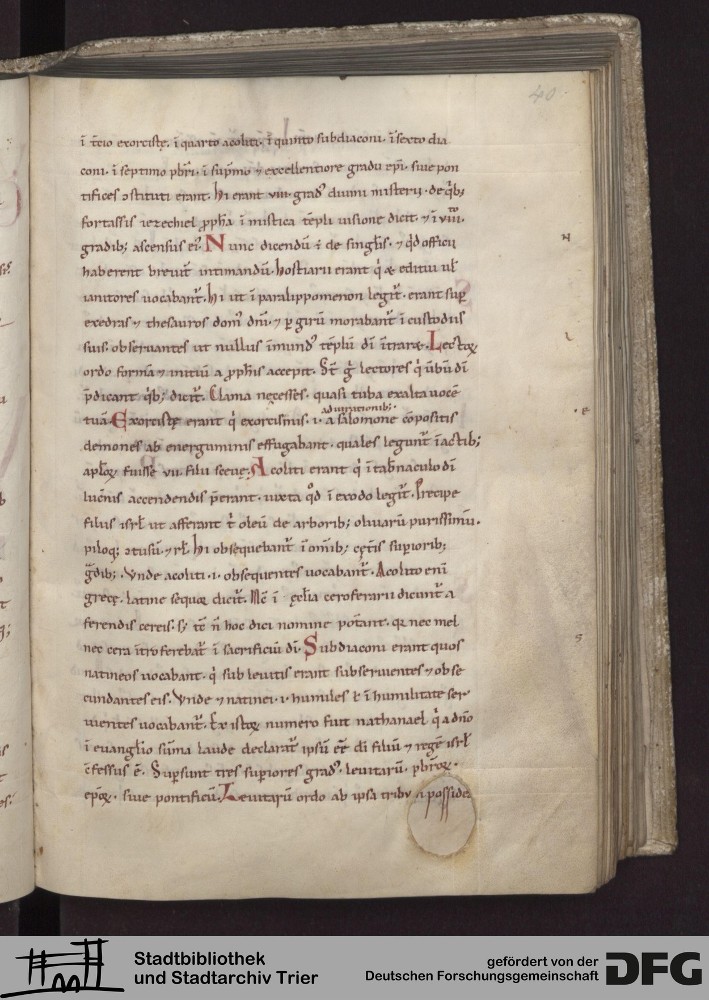 40
ī tcio exorcistę. ī quarto acoliti. ī quinto subdiaconi. ī sexto dia
coni. ī septimo pbri. ī supmo ⁊ excellentiore gradu epi. siue pon
tifices ɔstituti erant. hi erant viii. grad' diuini misterii. de qb;
fortassis iezechiel ppha ī mistica tēpli uisione dicit. ⁊ ī viii.
gradib; ascensus ei. Nunc dicendū ē de singlis. ⁊ qd officii
haberent breuit intimandū. hostiarii erant q ⁊ editui ul
ianitores uocabant. hi ut ī paralippomenon legit. erant sup
exedras ⁊ thesauros dom' dni. ⁊ p girū morabant ī custodiis
suis. obseruantes ut nullus īmund' tēplū di ītraret. Lectoꝝ
ordo formā ⁊ initiū a pphis accepit. St g lectores q ūbū di
pdicant qb; dicit. Clama ne cesses. quasi tuba exalta uocē
adiurationib;
tuā. Exorcistę erant q exorcismis .i. a salomone cōpositis
demones ab energuminis effugabant. quales legunt ī actib;
aploꝝ fuisse vii. filii sceuę. Acoliti erant q ī tabnaculo di
lucnis accendendis perant. iuxta qd ī exodo legit. Precipe
filiis isrl ut afferant t oleū de arborib; oliuarū purissimū.
piloq; ɔtusū. ⁊ rl. hi obsequebant ī omib; cętis supiorib;
gdib;. Vnde acoliti .i. obsequentes uocabant. Acolito enī
grece. latine sequor dicit. Nc ī ęclia ceroferarii dicunt a
ferendis cereis. s; tc n hoc dici nomine potant. qa nec mel
nec cera ītroferebat ī sacrificiū di. Subdiaconi erant quos
natineos uocabant. q sub leuitis erant subseruientes ⁊ obse
cundantes eis. Vnde ⁊ natinei .i. humiles ł ī humilitate ser
uientes uocabant. Ex istoꝝ numero fuit nathanael q a dno
ī euanglio sūma laude declarat ipsū eē di filiū ⁊ regē isrl
cfessus ē. Supsunt tres supiores grad'. leuitarū. pbroꝝ.
epoꝝ. siue pontificū. Leuitarū ordo ab ipsa tribu a posside
Stadtbibliothek
und Stadtarchiv Trier
gefördert von der
Deutschen Forschungsgemeinschaft
DFG